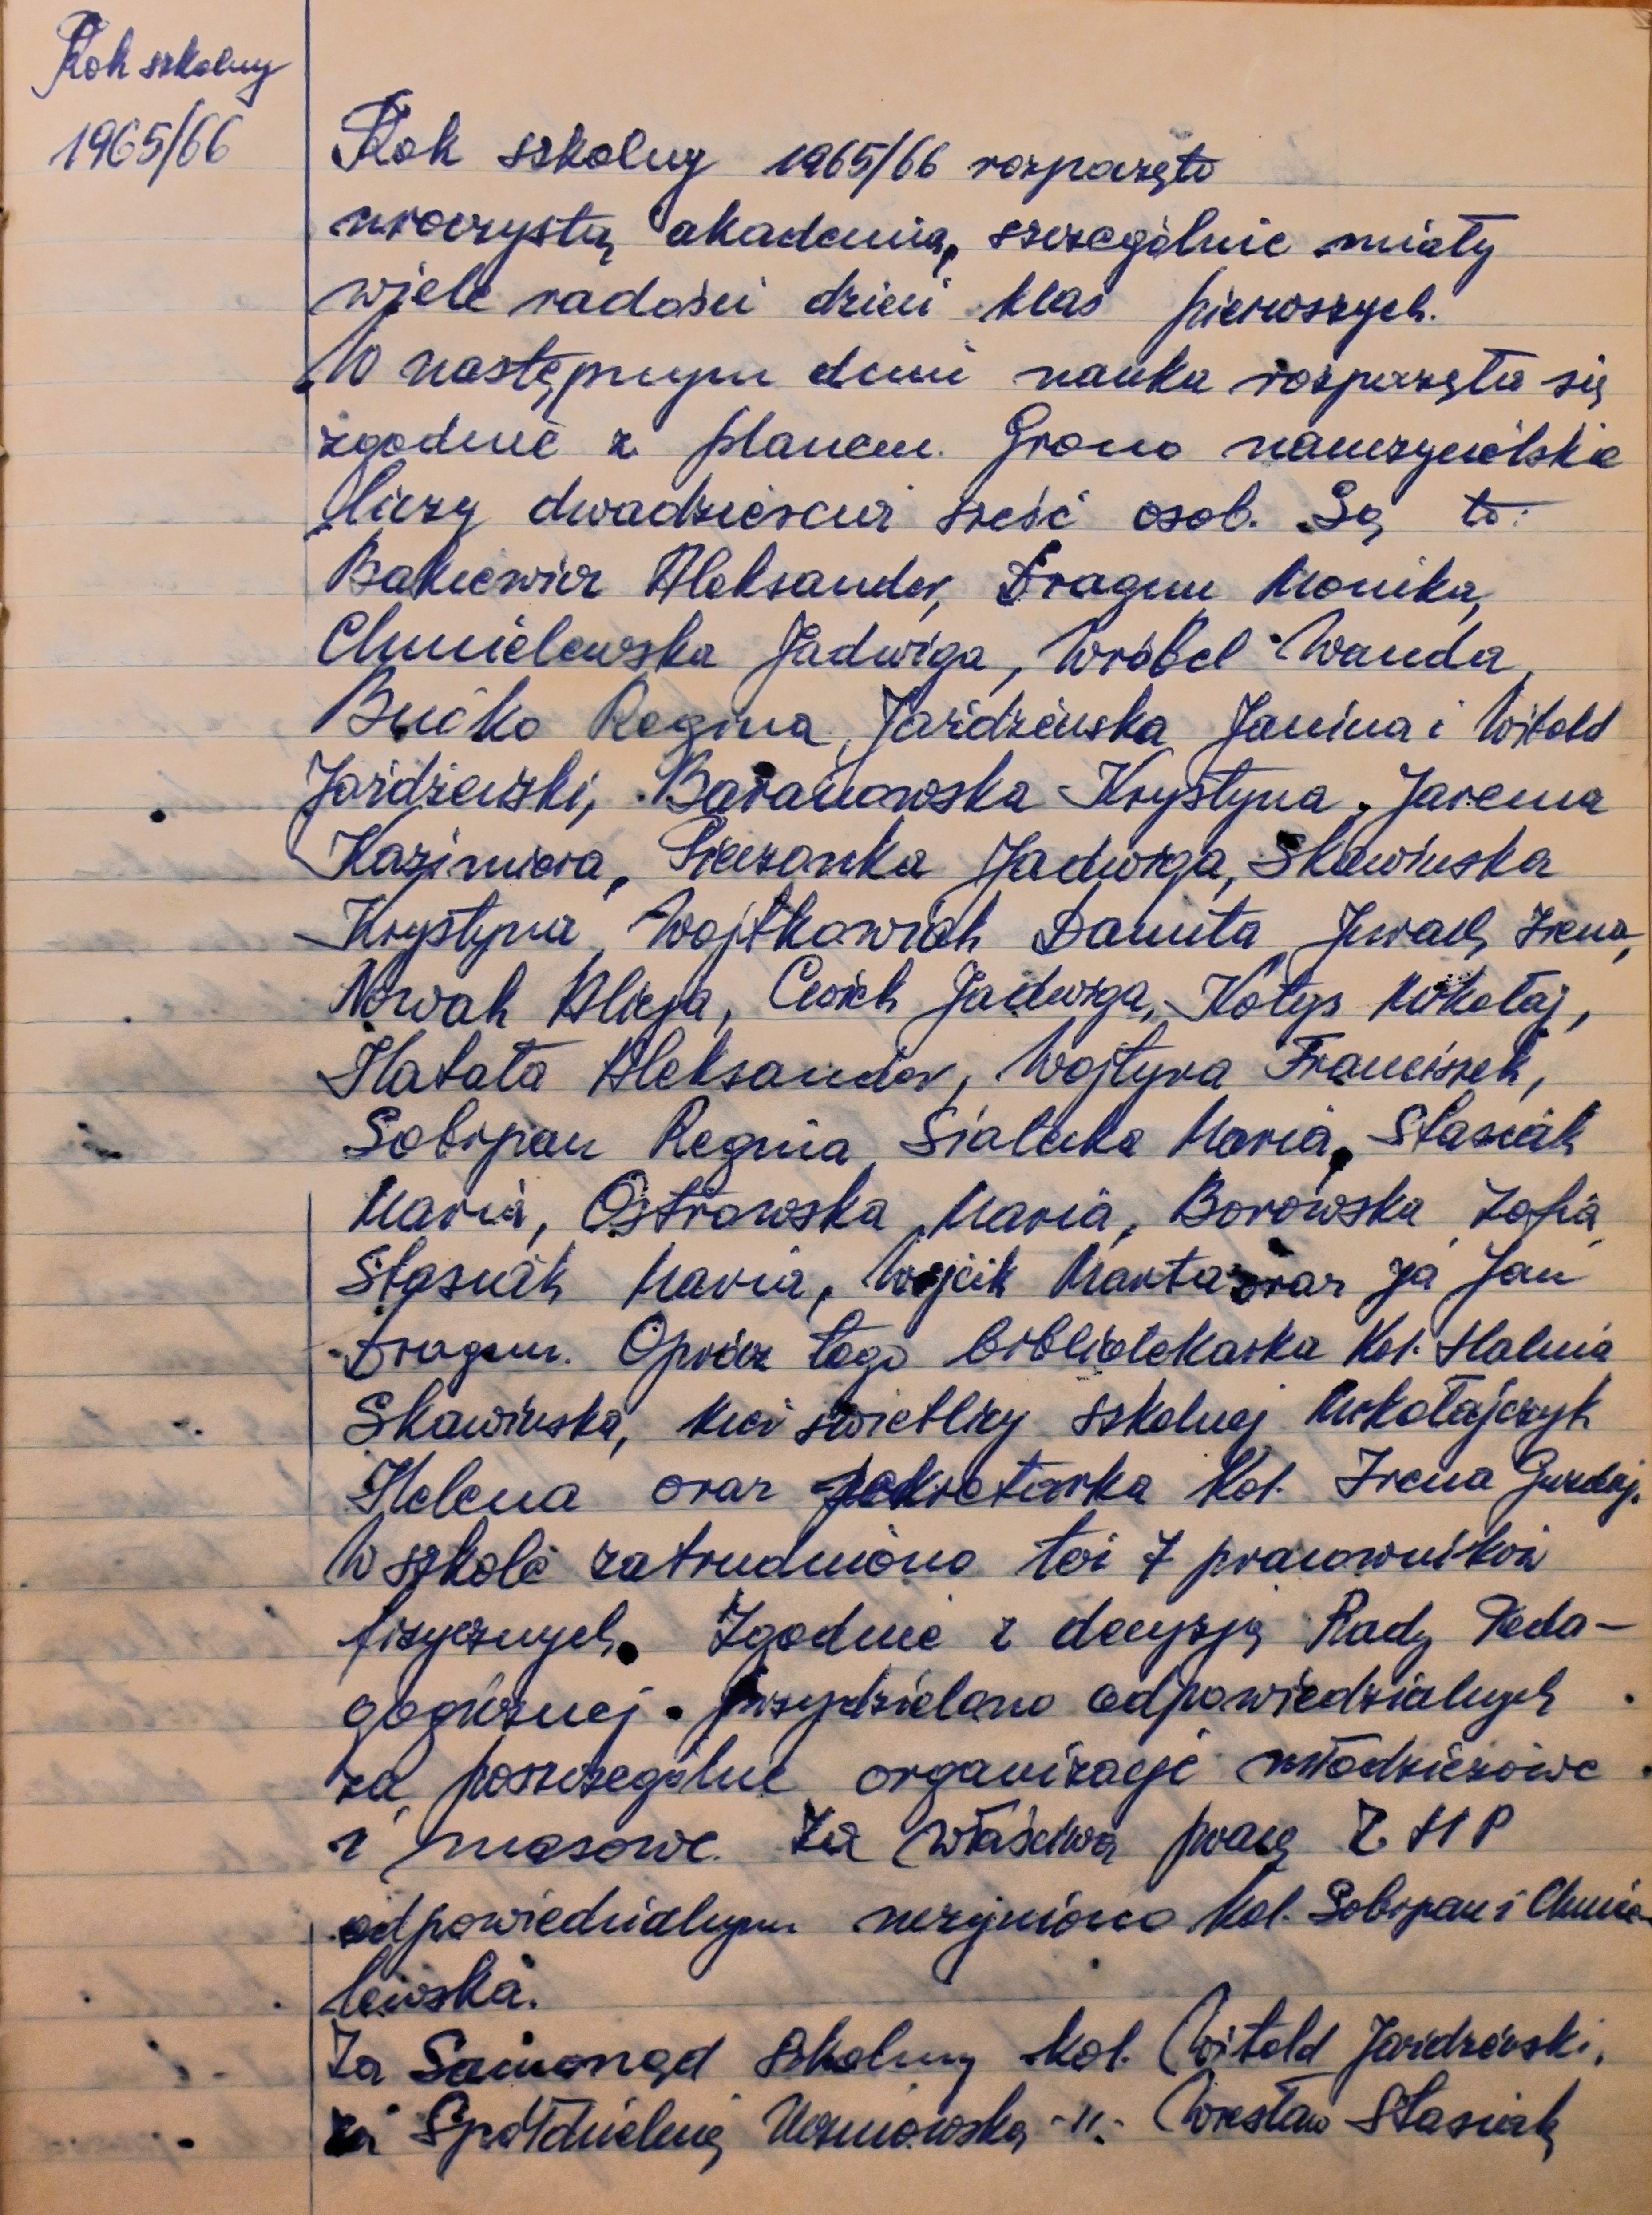 Rok szkolny
1965/66
Rok szkolny 1965/66 rozpoczęto
uroczystą akademią, szczególnie miały
wiele radości dzieci klas pierwszych.
W następnym dniu nauka rozpoczęła się
zgodnie z planem. Grono nauczycielskie
liczy dwadzieścia sześć osob. Są to:
Bakiewicz Aleksander, Dragun Monika,
Chmielewska Jadwiga, Wróbel Wanda,
Bućko Regina, Jaździewska Janina i Witold
Jaździewski, Baranowska Krystyna, Jarema
Kazimiera, Jadwiga, Skawińska
Krystyna, Wojtkowiak Danuta, Irena,
Nowak Alicja, Ćwiek Jadwiga, Kotys Mikołaj,
Hałata Aleksander, Wojtyra Franciszek,
Sobipan Regina, Maria, Stasiak
Maria, Ostrowska Maria, Borowska Zofia,
Stasiak Maria, Wójcik Marta oraz ja Jan
Dragun. Oprócz tego bibliotekarka Kol. Halina
Skawińska, kier świetlicy szkolnej Mikołajczyk
Helena oraz sekretarka Kol. Irena
W szkole zatrudniono też 7 pracowników
fizycznych. Zgodnie z decyzją Rady Peda-
gogicznej przydzielono odpowiedzialnych
za poszczególne organizacje młodzieżowe
i masowe. Za właściwą pracę Z H P
odpowiedzialnym uczyniono kol. Sobipan i Chmie-
lewska.
Za Samorząd szkolny kol. Witold Jaździewski,
za Spółdzielnię Uczniowską -"- Wiesław Stasiak